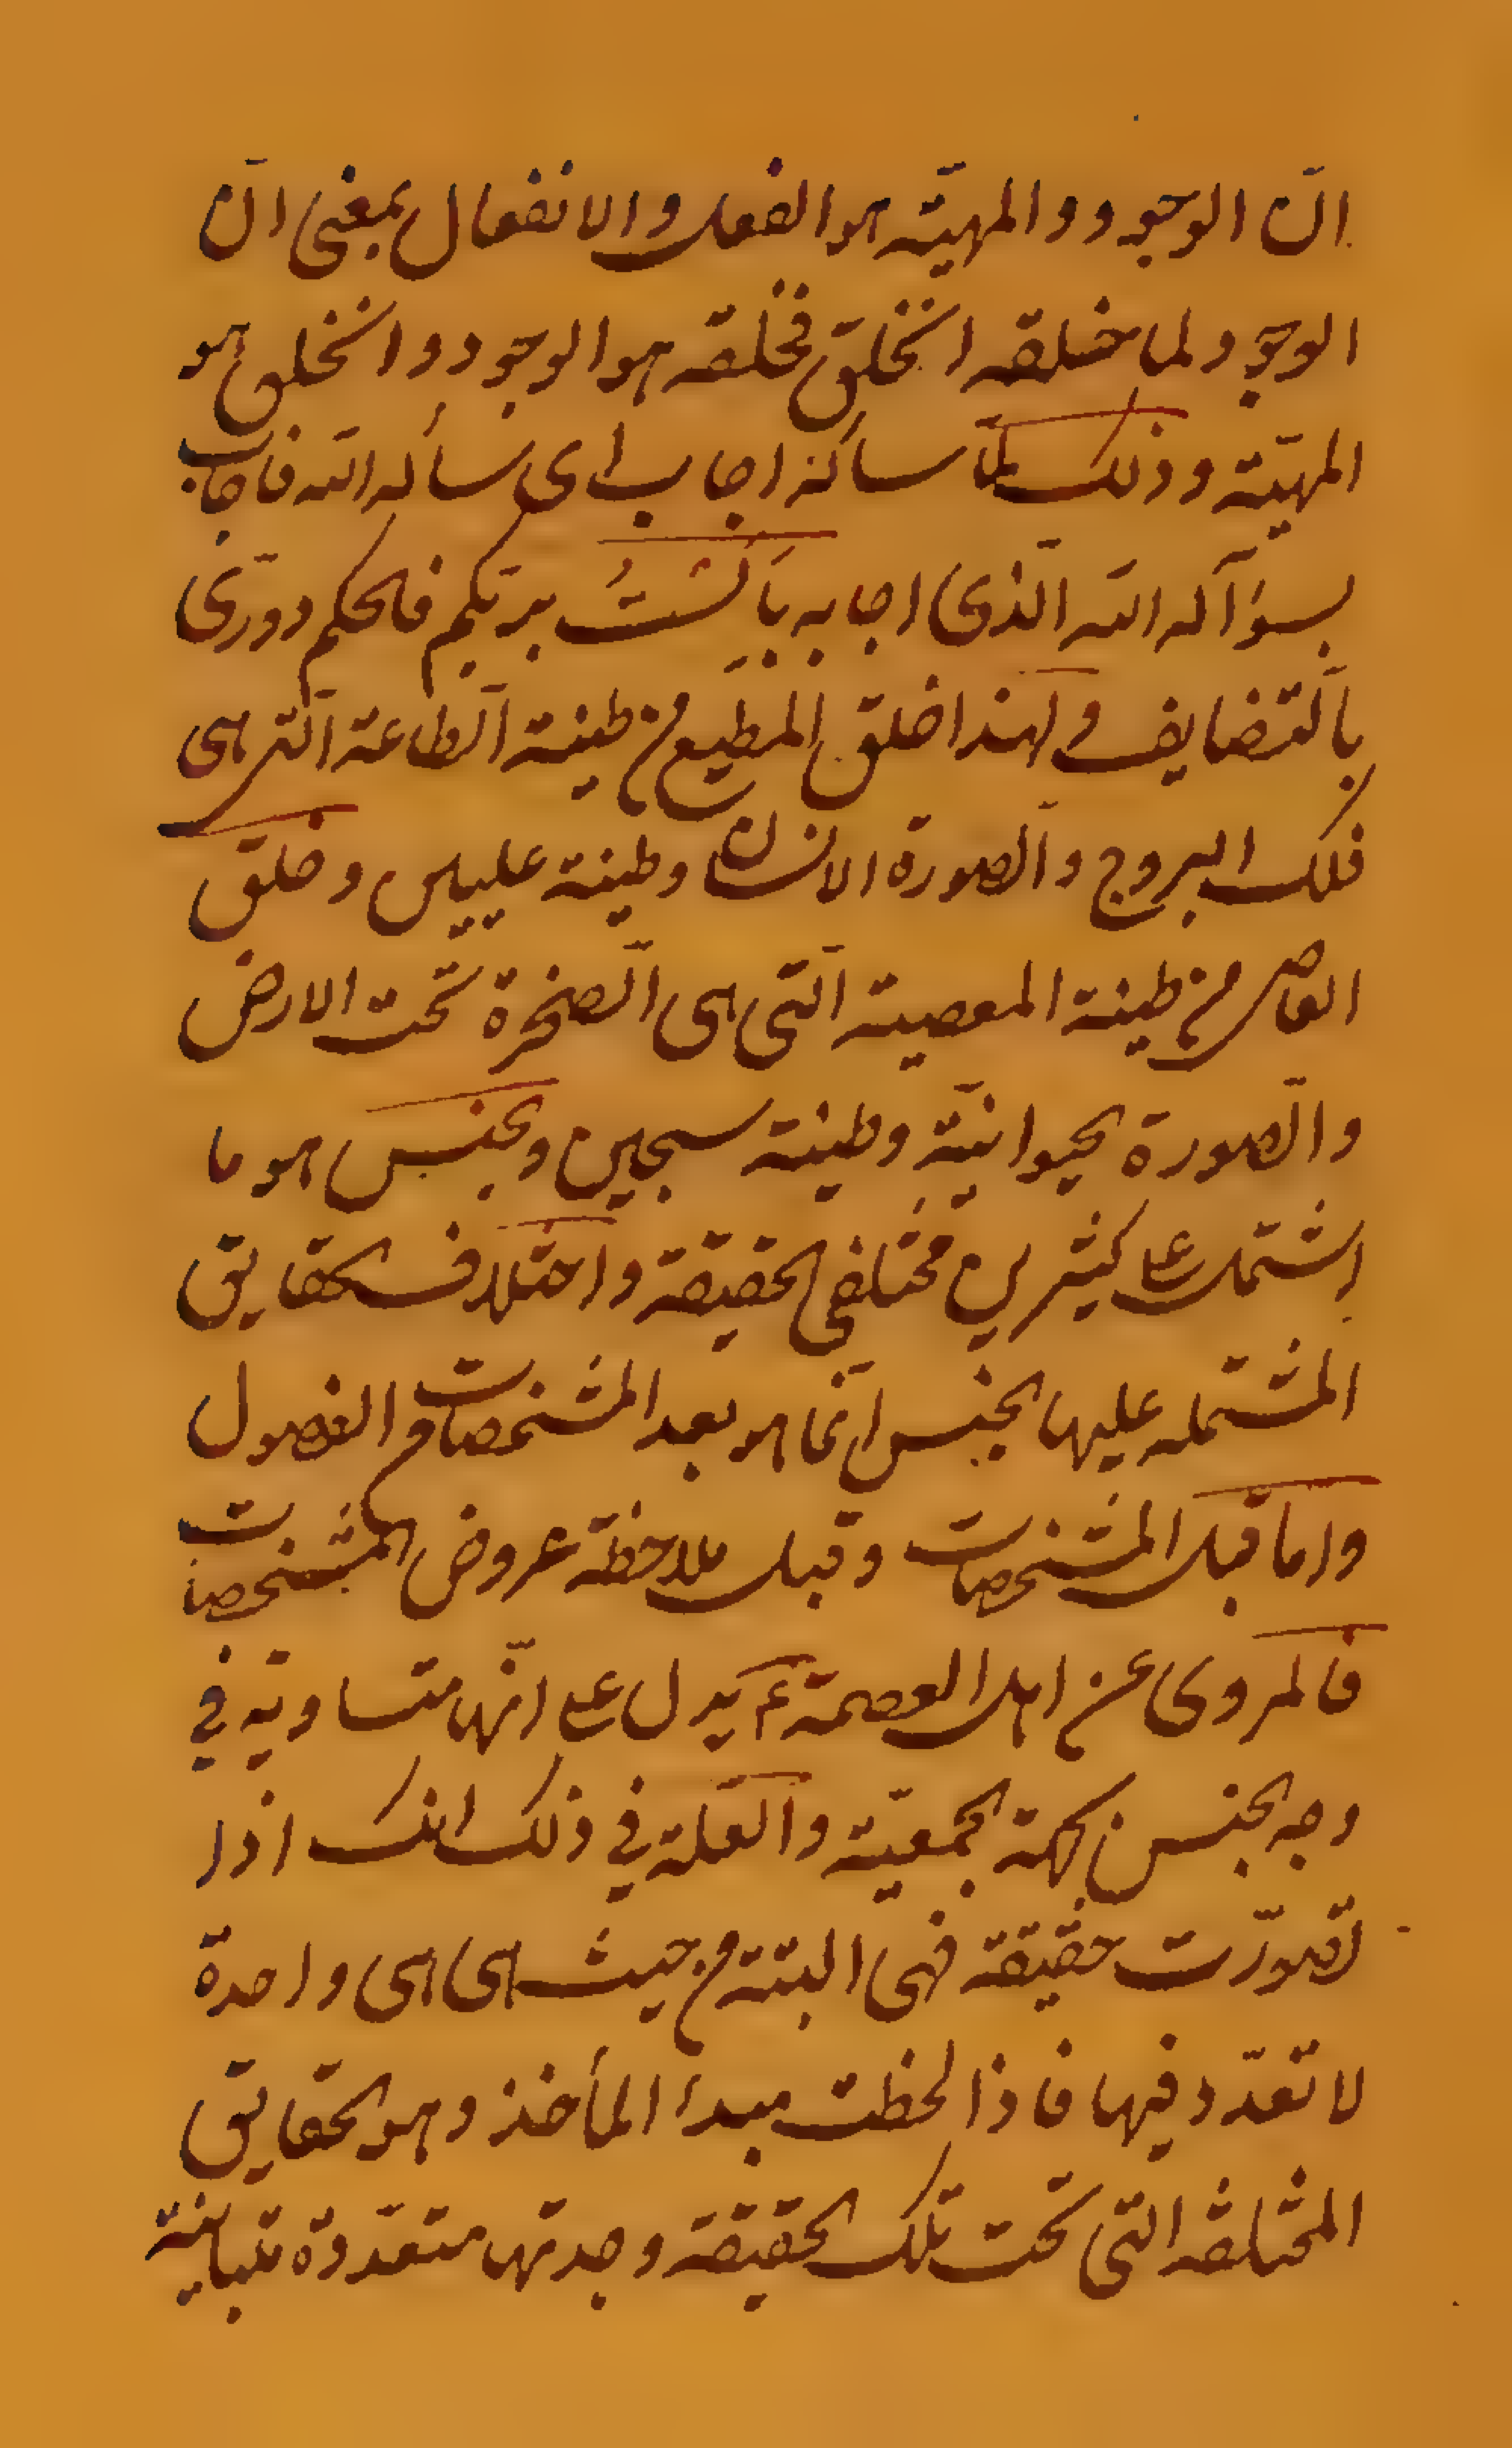 انّ الوجود والمهيّة هو الفعل والانفعال بمعنى انّ
الوجود لما خلقه انخلق فخلقه هو الوجود وانخلق هو
المهيّة وذلك لمّا سأله اجاب اى سأله الله فاجاب
بسؤاله الله الّذى اجابه بألست بربّكم فالحكم دورّى
بالتّضايف ولهذا خلق المطيع من طينة الطاعة الّتى هى
فلك البروج والصّورة الانسان وطينة عليين وخلق
العاصى من طينة المعصية الّتى هى الصّخرة تحت الارض
والصّورة الحيوانيّة وطينة سجين والجنس هو ما
اشتمل على كثيرين مختلفى الحقيقة واختلاف الحقايق
المشتمله عليها الجنس انّما هو بعد المشخصات والفصول
واما قبل المشخصات وقبل ملاحظة عروض المشخصات
فالمروى عن اهل العصمة ع يدل على انّها متساوية فى
وجه الجنس الجمعيّة والعلّة فى ذلك انك اذا
تصوّرت حقيقة فهى البتة من حيث هى هى واحدة
لا تعدّد فيها فاذا لحظت مبدء المأخذ وهو الحقايق
المختلفة التى تحت تلك الحقيقة وجدتها متعدّدة متباينة